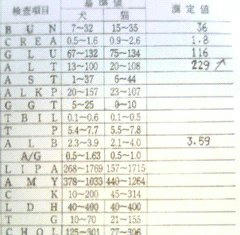 検査項目 基準値 測定値
犬 猫
BUN 7~32 15~35 36
CREA 0.5~1.6 0.9~2.6 1.8
GLU 67~132 75~134 116
ALT 13~100 20~108 229 ↗
AST 1~37 6~44
ALKP 20~157 23~107
GGT 5~25 0~10
TBIL 0.1~0.6 0.1~0.5
TP 5.4~7.7 5.5~7.8
ALB 2.3~3.9 2.1~4.0 3.59
A/G 0.5~1.63 0.5~1.0
LIPA 268~1769 157~1715
AMY 378~1033 440~1264
CK 10~200 45~314
LDH 40~400 40~400
TG 10~70 21~155
CHOL 125~301 77~396